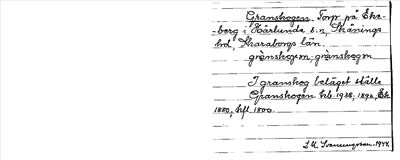 Granskogen Torp på Eke-
-berg i Härlunda s:n, Skånings
hd, Skaraborgs län.
grànskogen; grànskogen
I granskog beläget ställe
Granskogen hb. 1938, 1890, Ek
1880, hfl 1800.
1944